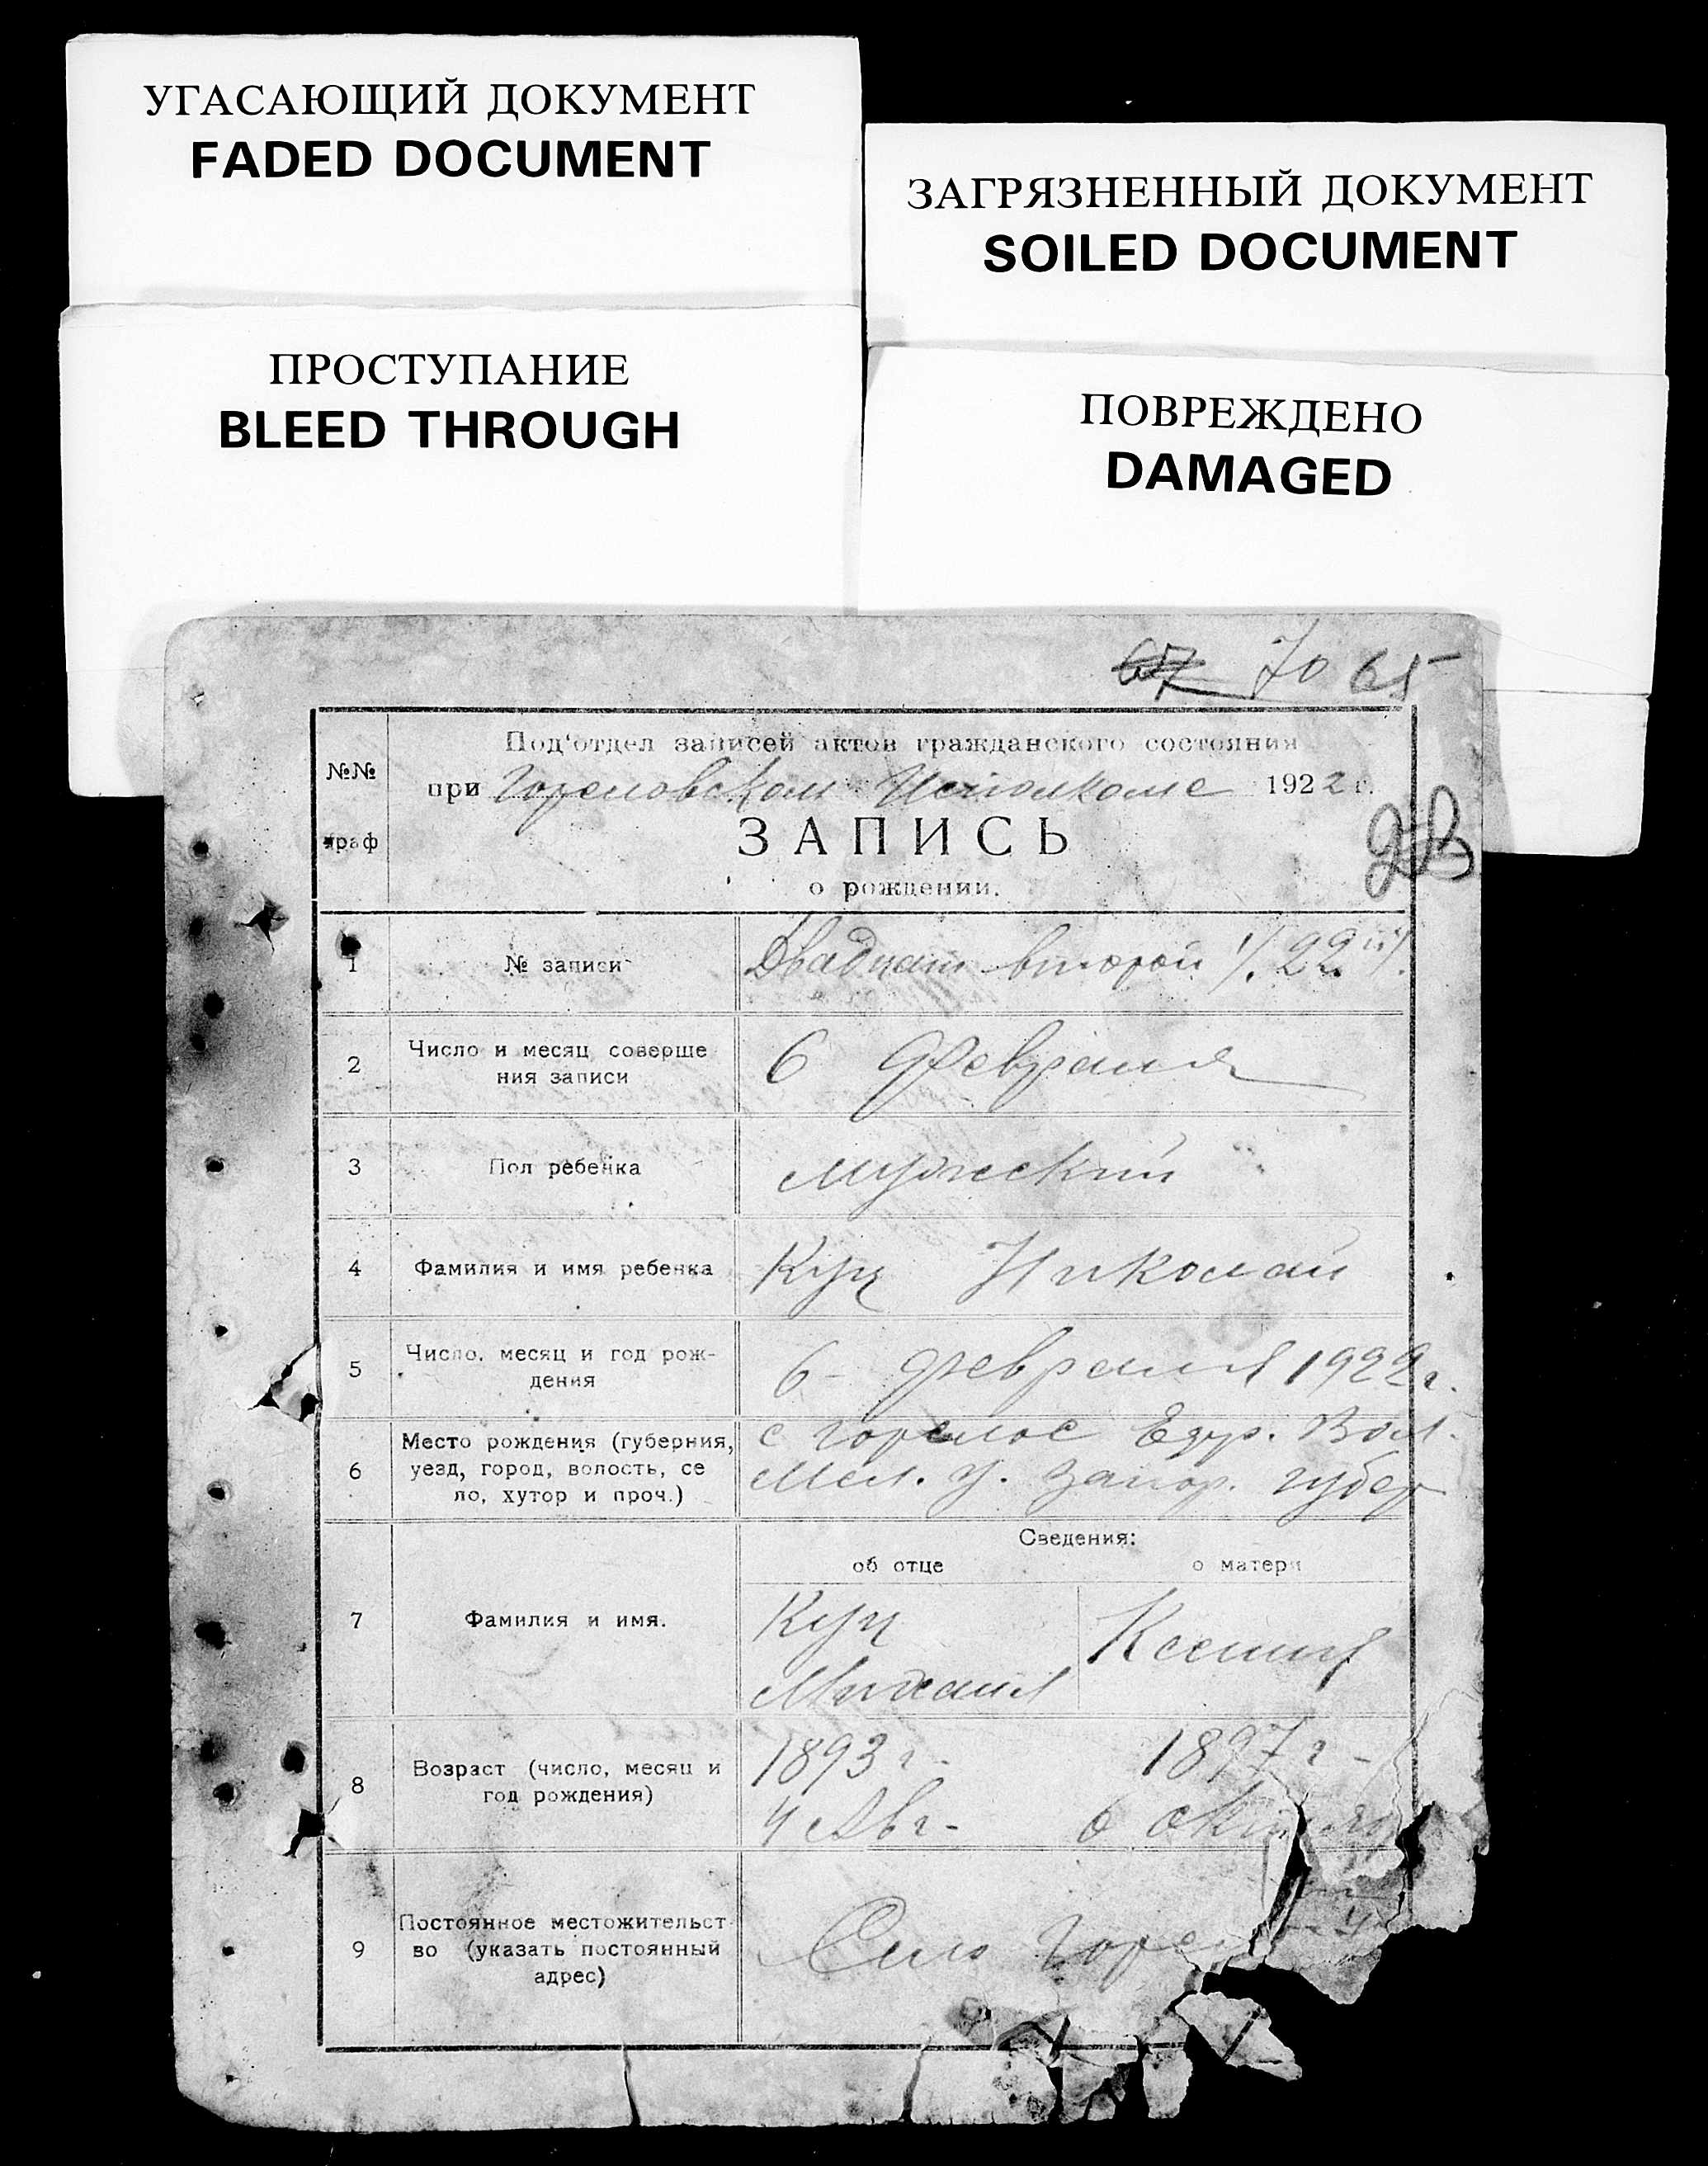 УГАСАЮЩИЙ ДОКУМЕНТ
FADED DOCUMENT
ЗАГРЯЗНЕННЫЙ ДОКУМЕНТ
SOILED DOCUMENT
ПРОСТУПАНИЕ
BLEED THROUGH
ПОВРЕЖДЕНО
DAMAGED
67 70 65
№№ граф
Под'отдел записей актов гражданского состояния
при Гореловском Исполкоме 1922 г.
ЗАПИСЬ
о рождении.
1 № записи Двадцат второй /22/.
2 Число и месяц соверше
ния записи 6 Февраля
3 Пол ребенка мужской
4 Фамилия и имя ребенка Куц Николай
5 Число, месяц и год рож-
дения 6 февраля 1922 г.
6 Место рождения (губерния,
уезд, город, волость, се
ло, хутор и проч.)
с Горелое Вол.
Мел. у. Запор. губер
Сведения:
об отце о матери
7 Фамилия и имя.
Куц
Михаил
Ксения
8 Возраст (число, месяц и
год рождения)
1893 г. 1897 г.
4 Авг. 6
9 Постоянное местожительст
во (указать постоянный
адрес)
Село